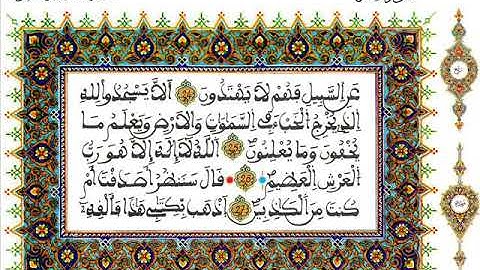 عَنِ السَّبِيلِ فَهُمْ لَا يَهْتَدُونَ أَلَّا يَسْجُدُوا لِلَّهِ
الَّذِي يُخْرِجُ الْخَبْءَ فِي السَّمَاوَاتِ وَالْأَرْضِ وَيَعْلَمُ مَا
تُخْفُونَ وَمَا تُعْلِنُونَ اللَّهُ لَا إِلَٰهَ إِلَّا هُوَ رَبُّ
الْعَرْشِ الْعَظِيمِ قَالَ سَنَنْظُرُ أَصَدَقْتَ أَمْ
كُنْتَ مِنَ الْكَاذِبِينَ اذْهَبْ بِكِتَابِي هَٰذَا فَأَلْقِهْ